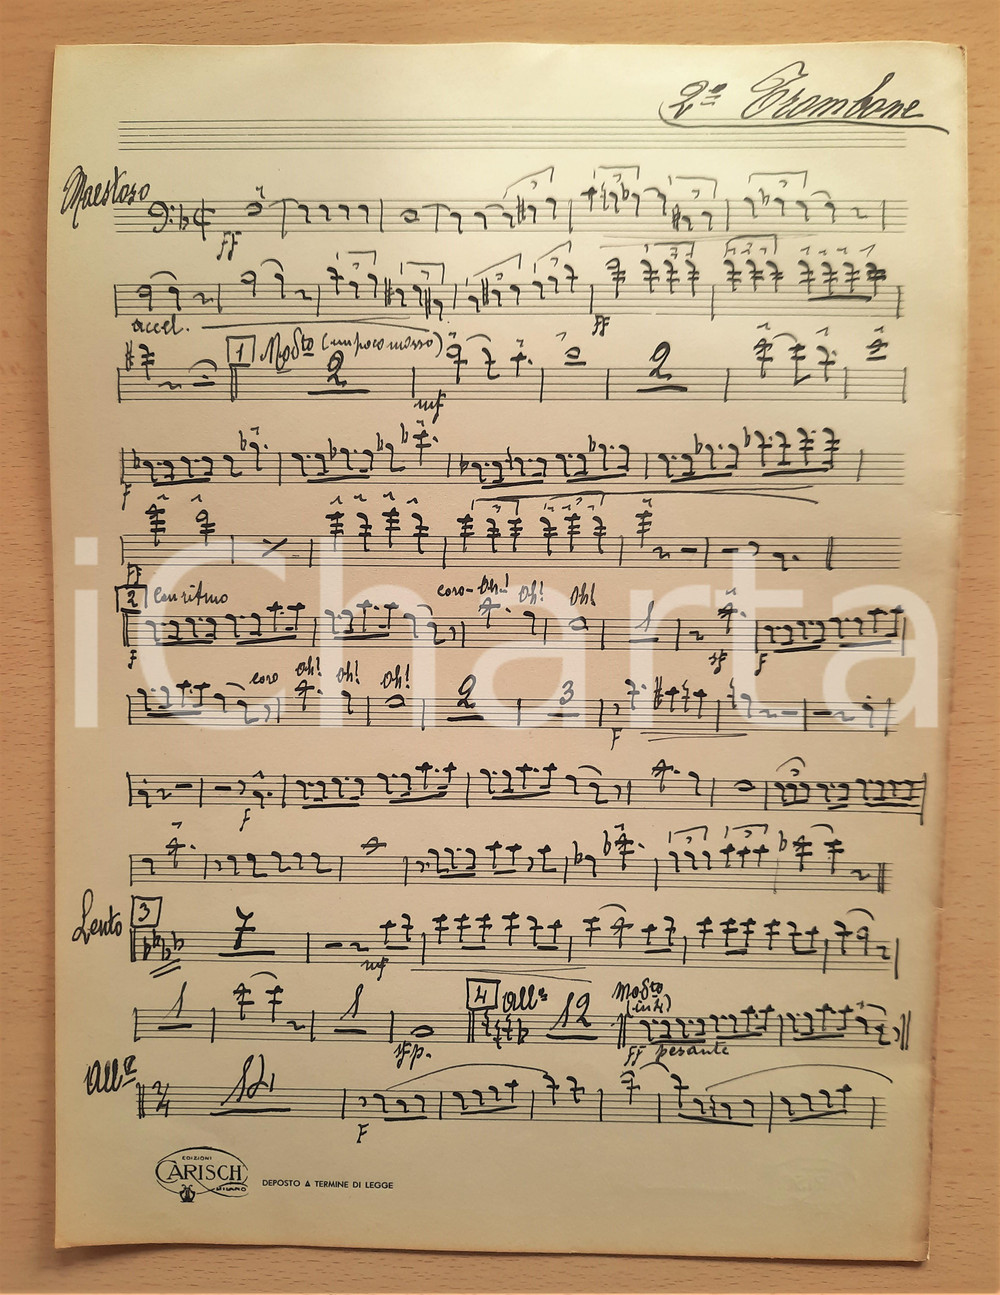 2º Trombone
Maestoso
FF
accel.
FF
1 Modto (un poco mosso)
2
2
mf
F
FF
2 Con ritmo
coro - Oh! Oh! Oh!
1
F
sf
F
coro Oh! Oh! Oh!
2
3
F
F
Lento
3
7
mf
1
1
sfp.
4 All°
12
Modto
(in 4)
FF pesante
All°
2/4
F
iCharta
EDIZIONI
CARISCH
MILANO
DEPOSTO A TERMINE DI LEGGE